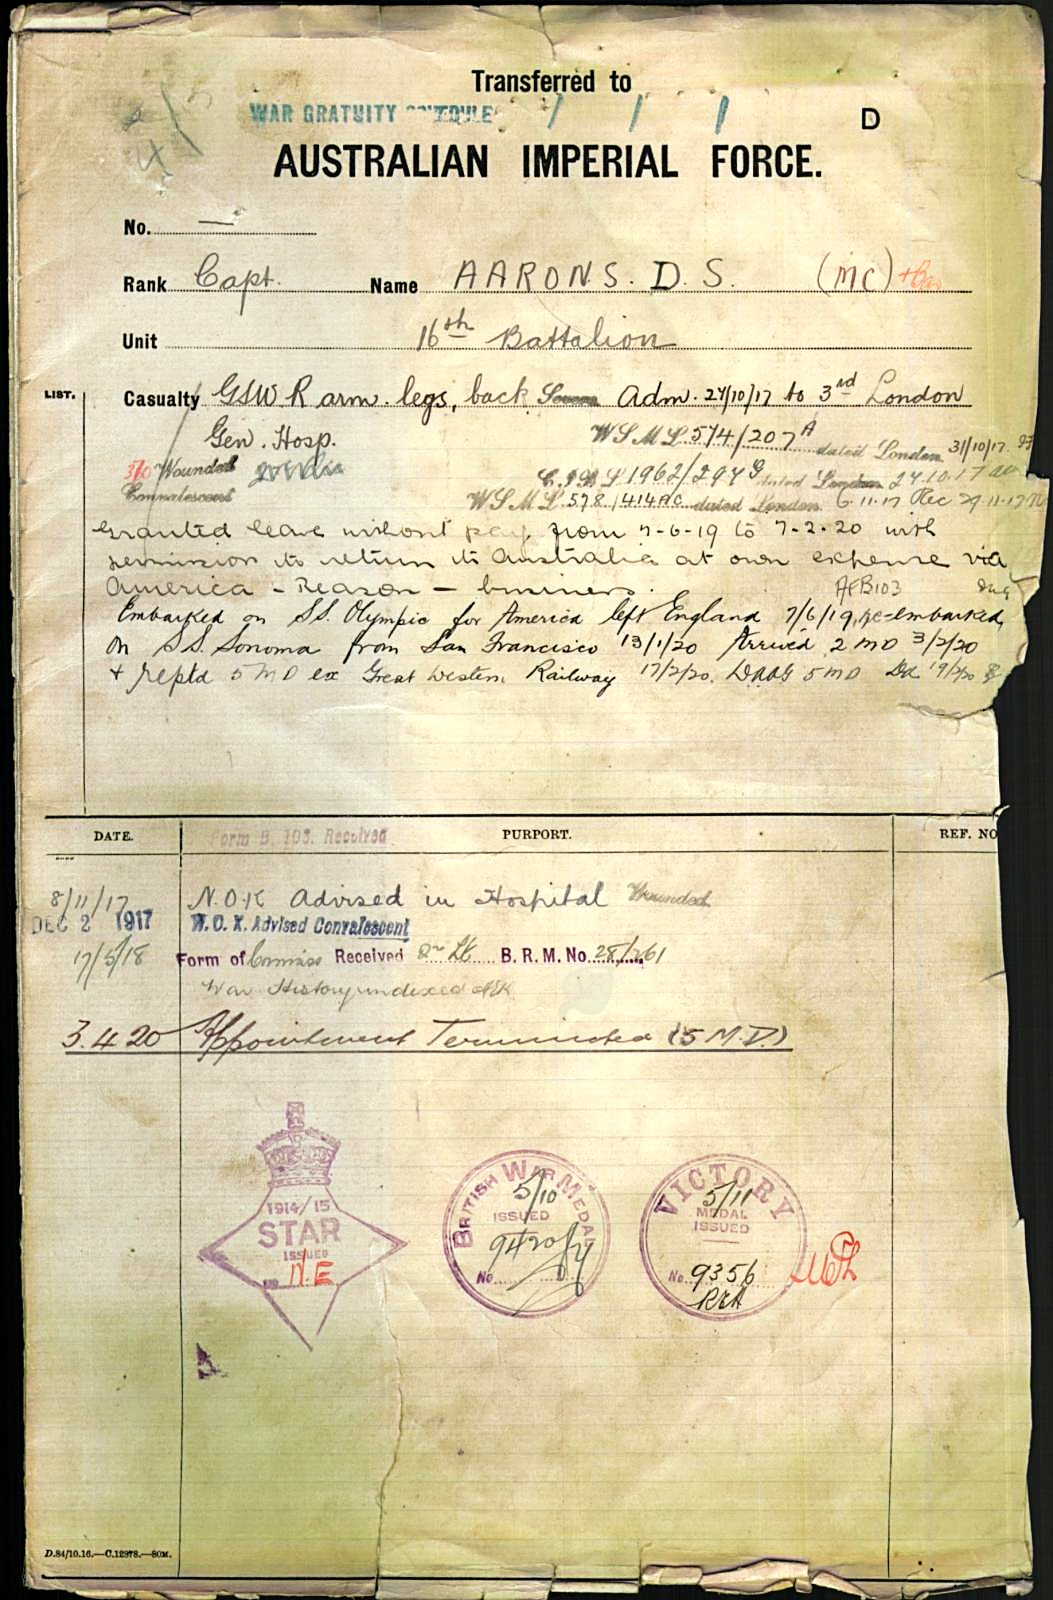 Transferred to
WAR GRATUITY SCHEDULE
D
AUSTRALIAN IMPERIAL FORCE.
No. —
Rank Capt. Name AARONS. D. S. (MC) + Bar
Unit 16th Battalion
LIST.
Casualty GSW R arm. legs, back Severe Adm. 24/10/17 to 3rd London
Gen. Hosp.
W S M L 574/207A dated London 31/10/17.
3/0 Wounded
1962/294G dated London 24.10.17
Convalescent
W S M L. 578/414AC. dated London 6.11.17 Rec 29.11.17
Granted leave without pay from 7-6-19 to 7-2-20 with
permission to return to Australia at own expense via
America - Reason - business. AFB103
Embarked on S.S. Olympic for America left England 7/6/19, re-embarked
on S.S. Sonoma from San Francisco 13/1/20 Arrived 2 MD 3/2/20
+ reptd 5 MD ex Great Western Railway 17/2/20. DAAG 5 MD Dd 19/2/20
DATE.
Form B. 103. Received
PURPORT.
REF. NO
8/11/17 N.O.K Advised in Hospital Wounded
DEC 2 1917 N.O.K. Advised Convalescent
17/5/18 Form of Commiss Received 2nd Lt B.R.M. No. 28/261
War History indexed
3.4.20 Appointment Terminated (5 M.D.)
1914/15
STAR
ISSUED
No N.E
BRITISH WAR MEDAL
5/10
ISSUED
9420
No.
VICTORY
5/11
MEDAL
ISSUED
No. 9356
D.84/10.16.—C.12978.—80M.